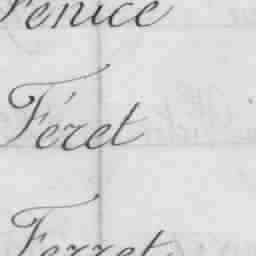 Fenice
Féret
Ferret